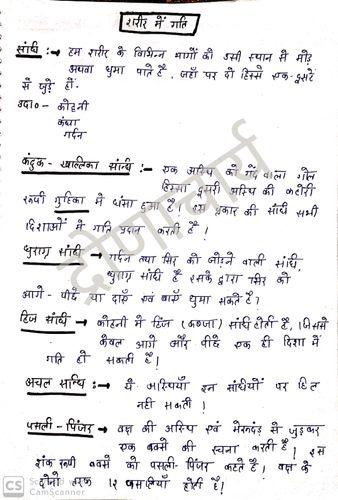 शरीर में गति
सांधि :→ हम शरीर के विभिन्न भागों को उसी स्थान से मोड़
अथवा घुमा पाते है, जहाँ पर दो हिस्से एक-दूसरे
से जुड़े हों.
उदा०- कोहनी
कंधा
गर्दन
कंदुक-खल्लिका सान्धि :→ एक अस्थि को गेंद वाला गोल
हिस्सा दूसरी अस्थि की कटोरी
रूपी गुहिका में धंसा हुआ है। इस प्रकार की सांधी सभी
दिशाओं में गति प्रदान करती है।
धुराग्र सांधी → गर्दन तथा सिर को जोड़ने वाली सांधी,
धुराग्र सांधी है इसके द्वारा सिर को
आगे-पीछे या दाएँ एवं बाएँ घुमा सकते है?
हिंज सांधी → कोहनी में हिंज (कब्जा) सांधि होती है, जिससे
केवल आगे और पीछे एक ही दिशा में
गति हो सकती है।
अचल सान्धि :→ ये अस्थियाँ इन सांधियों पर हिल
नहीं सकती।
पसली-पिंजर :→ वक्ष की अस्थि एवं मेरूदंड से जुड़कर
एक बक्से की रचना करती है। इस
शंकुरूपी बक्से को पसली-पिंजर कहते है। वक्ष के
दोनों तरफ १२ पसलियाँ होती है।
द्रोणाचार्य
CS
Scanned with
CamScanner